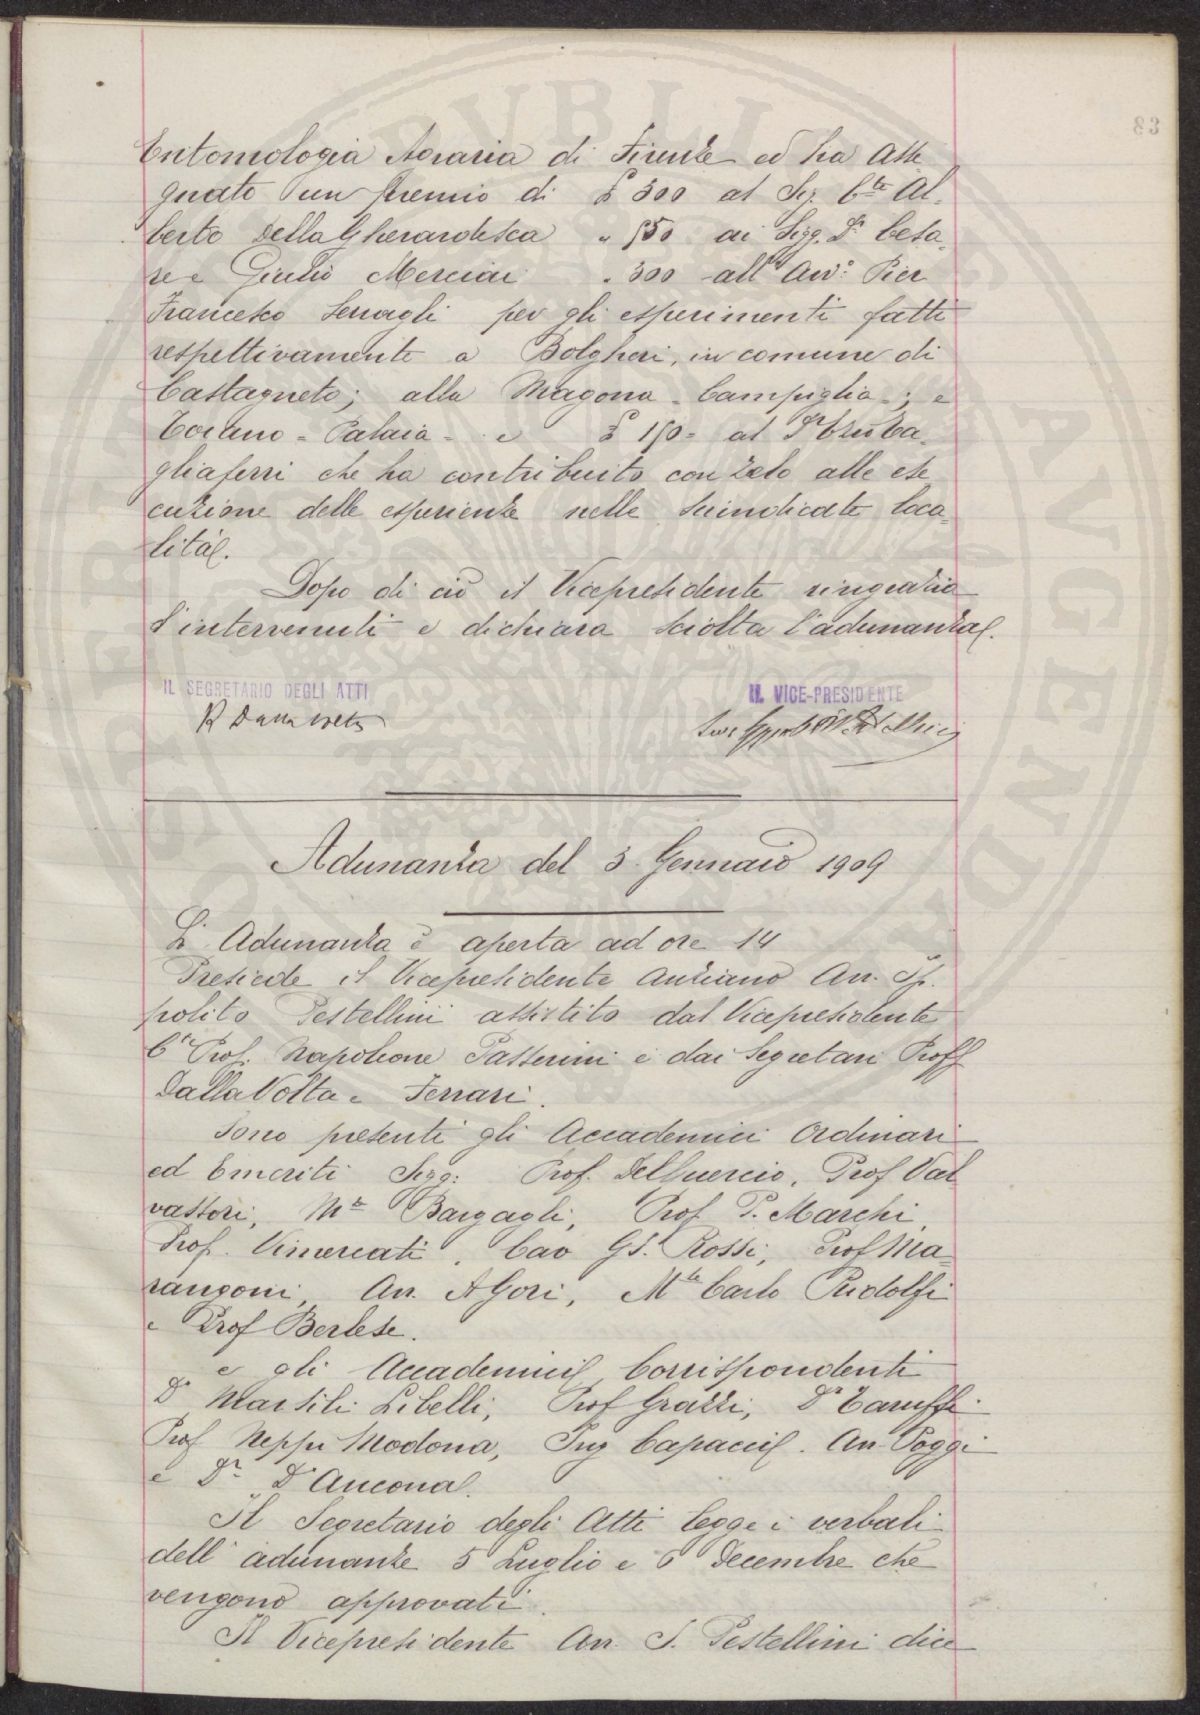 83
Entomologia Agraria di Firenze ed ha asse
gnato un premio di £ 300 al Sig. Cte Al-
berto Della Gherardesca " 550 ai Sigg. Dr Cesa-
re e Giulio Merciai " 300 all'Avv. Pier
Francesco Serragli per gli esperimenti fatti
respettivamente a Bolgheri, in comune di
Castagneto; alla Magona - Campiglia -; e
Toiano - Palaia - e £ 150 = al Dr
gliaferri che ha contribuito con zelo alle ese
cuzione delle esperienze nelle suindicate loca-
lità.
Dopo di ciò il Vicepresidente ringrazia
l'intervenuti e dichiara sciolta l'adunanza.
IL SEGRETARIO DEGLI ATTI
IL VICE-PRESIDENTE
R Dalla Volta
Adunanza del 3 Gennaio 1909
L'Adunanza è aperta ad ore 14
Presiede il Vicepresidente anziano Avv. Ip-
polito Pestellini assistito dal Vicepresidente
Cte Prof. Napoleone Passerini e dai Segretari Proff
Dalla Volta e Ferrari.
Sono presenti gli Accademici Ordinari
ed Emeriti Sigg: Prof. Del Guercio, Prof Val
vassori, Mse Bargagli, Prof P. Marchi,
Prof. Vimercati, Cav GS. Rossi, Prof Ma-
rangoni, Avv. A Gori, Mse Carlo Ridolfi
e Prof Berlese.
e gli Accademici Corrispondenti
Dr Marsili Libelli, Prof Grazzi, Dr Taruffi
Prof Neppi Modona, Ing Capacci. Avv Poggi
e Dr D'Ancona.
Il Segretario degli Atti legge i verbali
dell'adunanze 5 Luglio e 6 Decembre che
vengono approvati.
Il Vicepresidente Avv. I. Pestellini dice